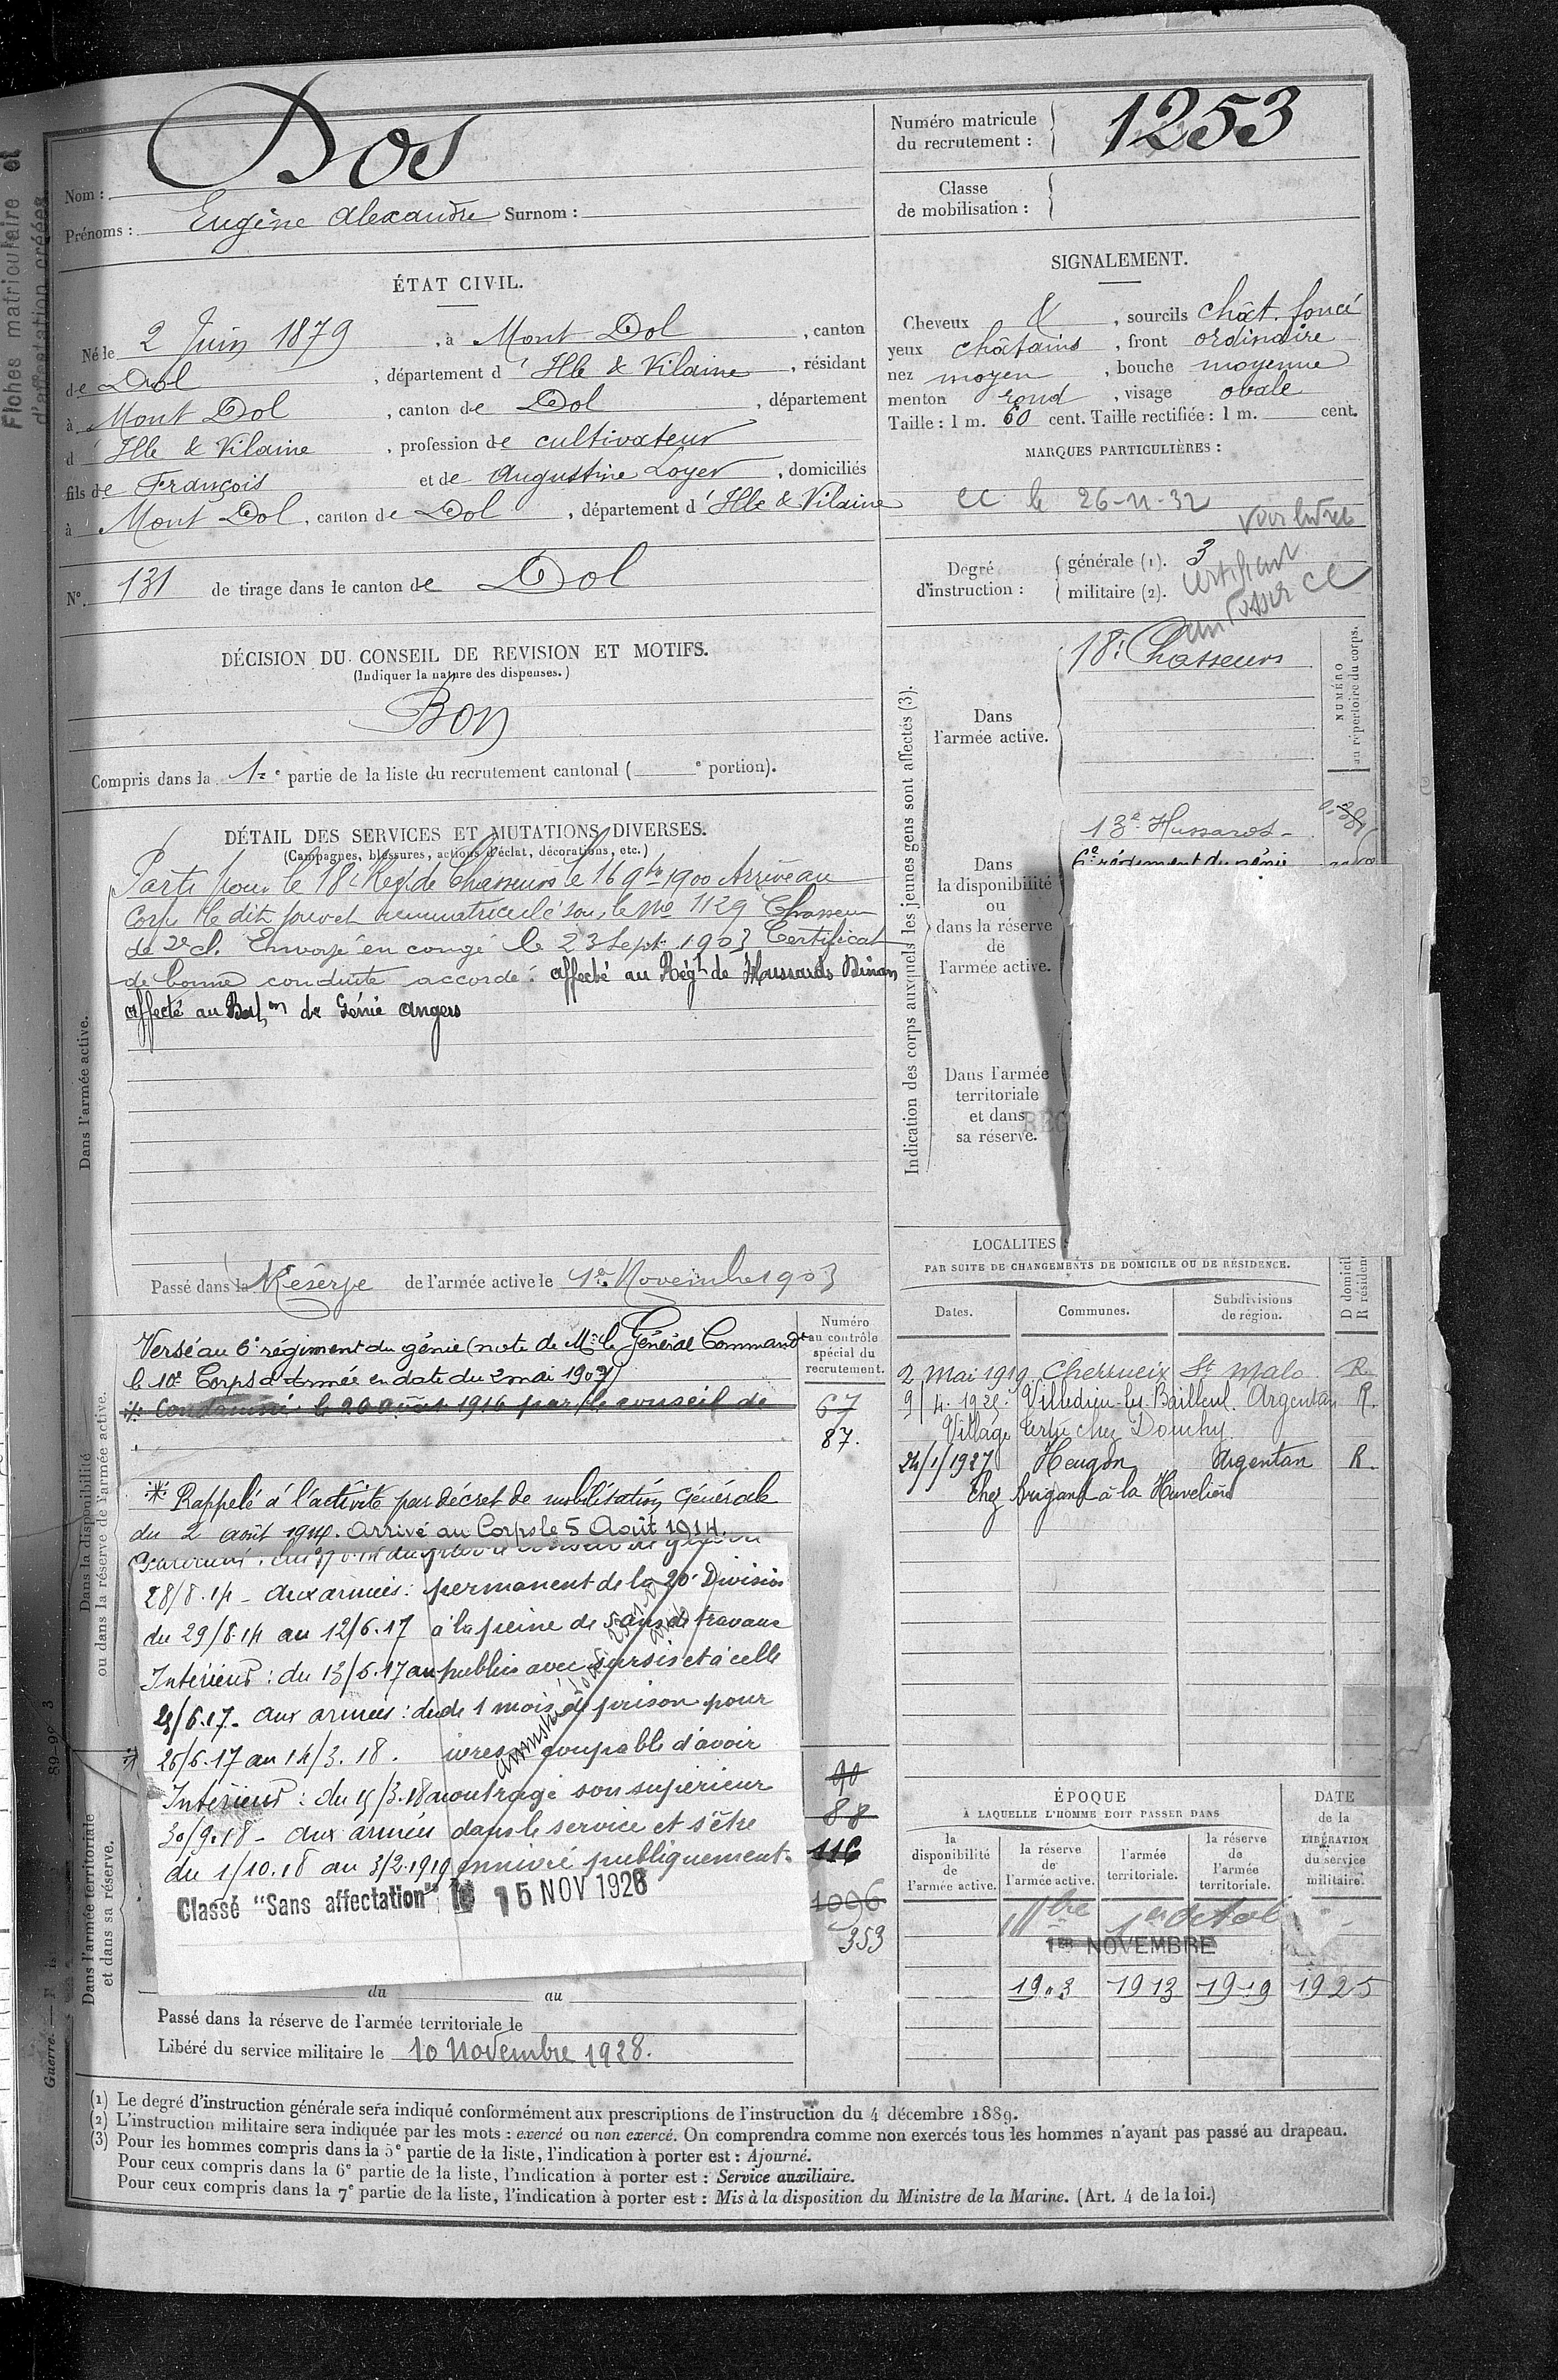 Fiches matriculaire et
d'affectation créées
Dos
Nom :
Prénoms : Eugène Alexandre Surnom :
Numéro matricule
du recrutement :
1253
Classe
de mobilisation :
ÉTAT CIVIL.
Né le 2 Juin 1879, à Mont Dol, canton
de Dol, département d'Ille & Vilaine, résidant
à Mont Dol, canton de Dol, département
d Ille & Vilaine, profession de cultivateur
fils de François et de Augustine Loyer, domiciliés
à Mont Dol, canton de Dol, département d'Ille & Vilaine
N° 131 de tirage dans le canton de Dol
SIGNALEMENT.
Cheveux &, sourcils chât. foncé
yeux châtains, front ordinaire
nez moyen, bouche moyenne
menton rond, visage ovale
Taille : 1 m. 60 cent. Taille rectifiée : 1 m. cent.
MARQUES PARTICULIÈRES :
CC le 26-11-32
Degré
d'instruction :
générale (1). 3
militaire (2).
DÉCISION DU CONSEIL DE REVISION ET MOTIFS.
(Indiquer la nature des dispenses.)
Bon
Compris dans la 1re partie de la liste du recrutement cantonal ( e portion).
DÉTAIL DES SERVICES ET MUTATIONS DIVERSES.
(Campagnes, blessures, actions d'éclat, décorations, etc.)
Dans l'armée active.
Parti pour le 18e Reg. de Chasseurs le 16 9bre 1900 Arrivé au
Corps le dit jour et immatriculé sous le No 1129 Chasseur
de 2e cl. Envoyé en congé le 23 Sept. 1903 Certificat
de bonne conduite accordé. affecté au Régt de Hussards Dinan
affecté au Batn de Génie Angers
Passé dans la Réserve de l'armée active le 1er Novembre 1903
Indication des corps auxquels les jeunes gens sont affectés (3).
Dans
l'armée active.
18e Chasseurs
NUMÉRO
au répertoire du corps.
Dans
la disponibilité
ou
dans la réserve
de
l'armée active.
13e Hussards
6e régiment du génie
Dans l'armée
territoriale
et dans
sa réserve.
Dans la disponibilité
ou dans la réserve de l'armée active.
Versé au 6e régiment du génie (note de Mr le Général Commandt
le 10e Corps d'Armée en date du 2 mai 1907)
* Condamné le 20 août 1916 par le conseil de
* Rappelé à l'activité par décret de mobilisation Générale
du 2 août 1914. Arrivé au Corps le 5 Août 1914.
28/8.14 - Aux armées :
du 29/8.14 au 12/6.17
Intérieur : du 13/6.17 au
25/6.17. Aux armées : du
26/6.17 au 14/3.18.
Intérieur : du 15/3.18 au
30/9.18 - Aux armées
du 1/10.18 au 3/2.1919
permanent de la 20e Division
à la peine de 5 ans de travaux
publics avec sursis et à celle
de 1 mois de prison pour
ivresse coupable d'avoir
outragé son supérieur
dans le service et s'être
enivré publiquement.
Classé "Sans affectation" le 15 NOV 1926
Numéro
au contrôle
spécial du
recrutement.
67
87.
90
88
116
1096
353
Dans l'armée territoriale
et dans sa réserve.
du au
Passé dans la réserve de l'armée territoriale le
Libéré du service militaire le 10 Novembre 1928.
LOCALITES
PAR SUITE DE CHANGEMENTS DE DOMICILE OU DE RÉSIDENCE.
Dates. Communes. Subdivisions de région. D domicil R résiden
2 Mai 1919 Cherrueix St Malo R
9/4.1925. Villedieu-les-Bailleul. Argentan R.
Village Tertu chez Douchy.
24/1/1927 Heugon Argentan R
chez Brigand à la Huvelière
ÉPOQUE
À LAQUELLE L'HOMME DOIT PASSER DANS
la disponibilité de l'armée active.
la réserve de l'armée active.
l'armée territoriale.
la réserve de l'armée territoriale.
DATE
de la
LIBÉRATION
du service
militaire.
1er octob
1ER NOVEMBRE
1903 1913 1919 1925
(1) Le degré d'instruction générale sera indiqué conformément aux prescriptions de l'instruction du 4 décembre 1889.
(2) L'instruction militaire sera indiquée par les mots : exercé ou non exercé. On comprendra comme non exercés tous les hommes n'ayant pas passé au drapeau.
(3) Pour les hommes compris dans la 5e partie de la liste, l'indication à porter est : Ajourné.
Pour ceux compris dans la 6e partie de la liste, l'indication à porter est : Service auxiliaire.
Pour ceux compris dans la 7e partie de la liste, l'indication à porter est : Mis à la disposition du Ministre de la Marine. (Art. 4 de la loi.)